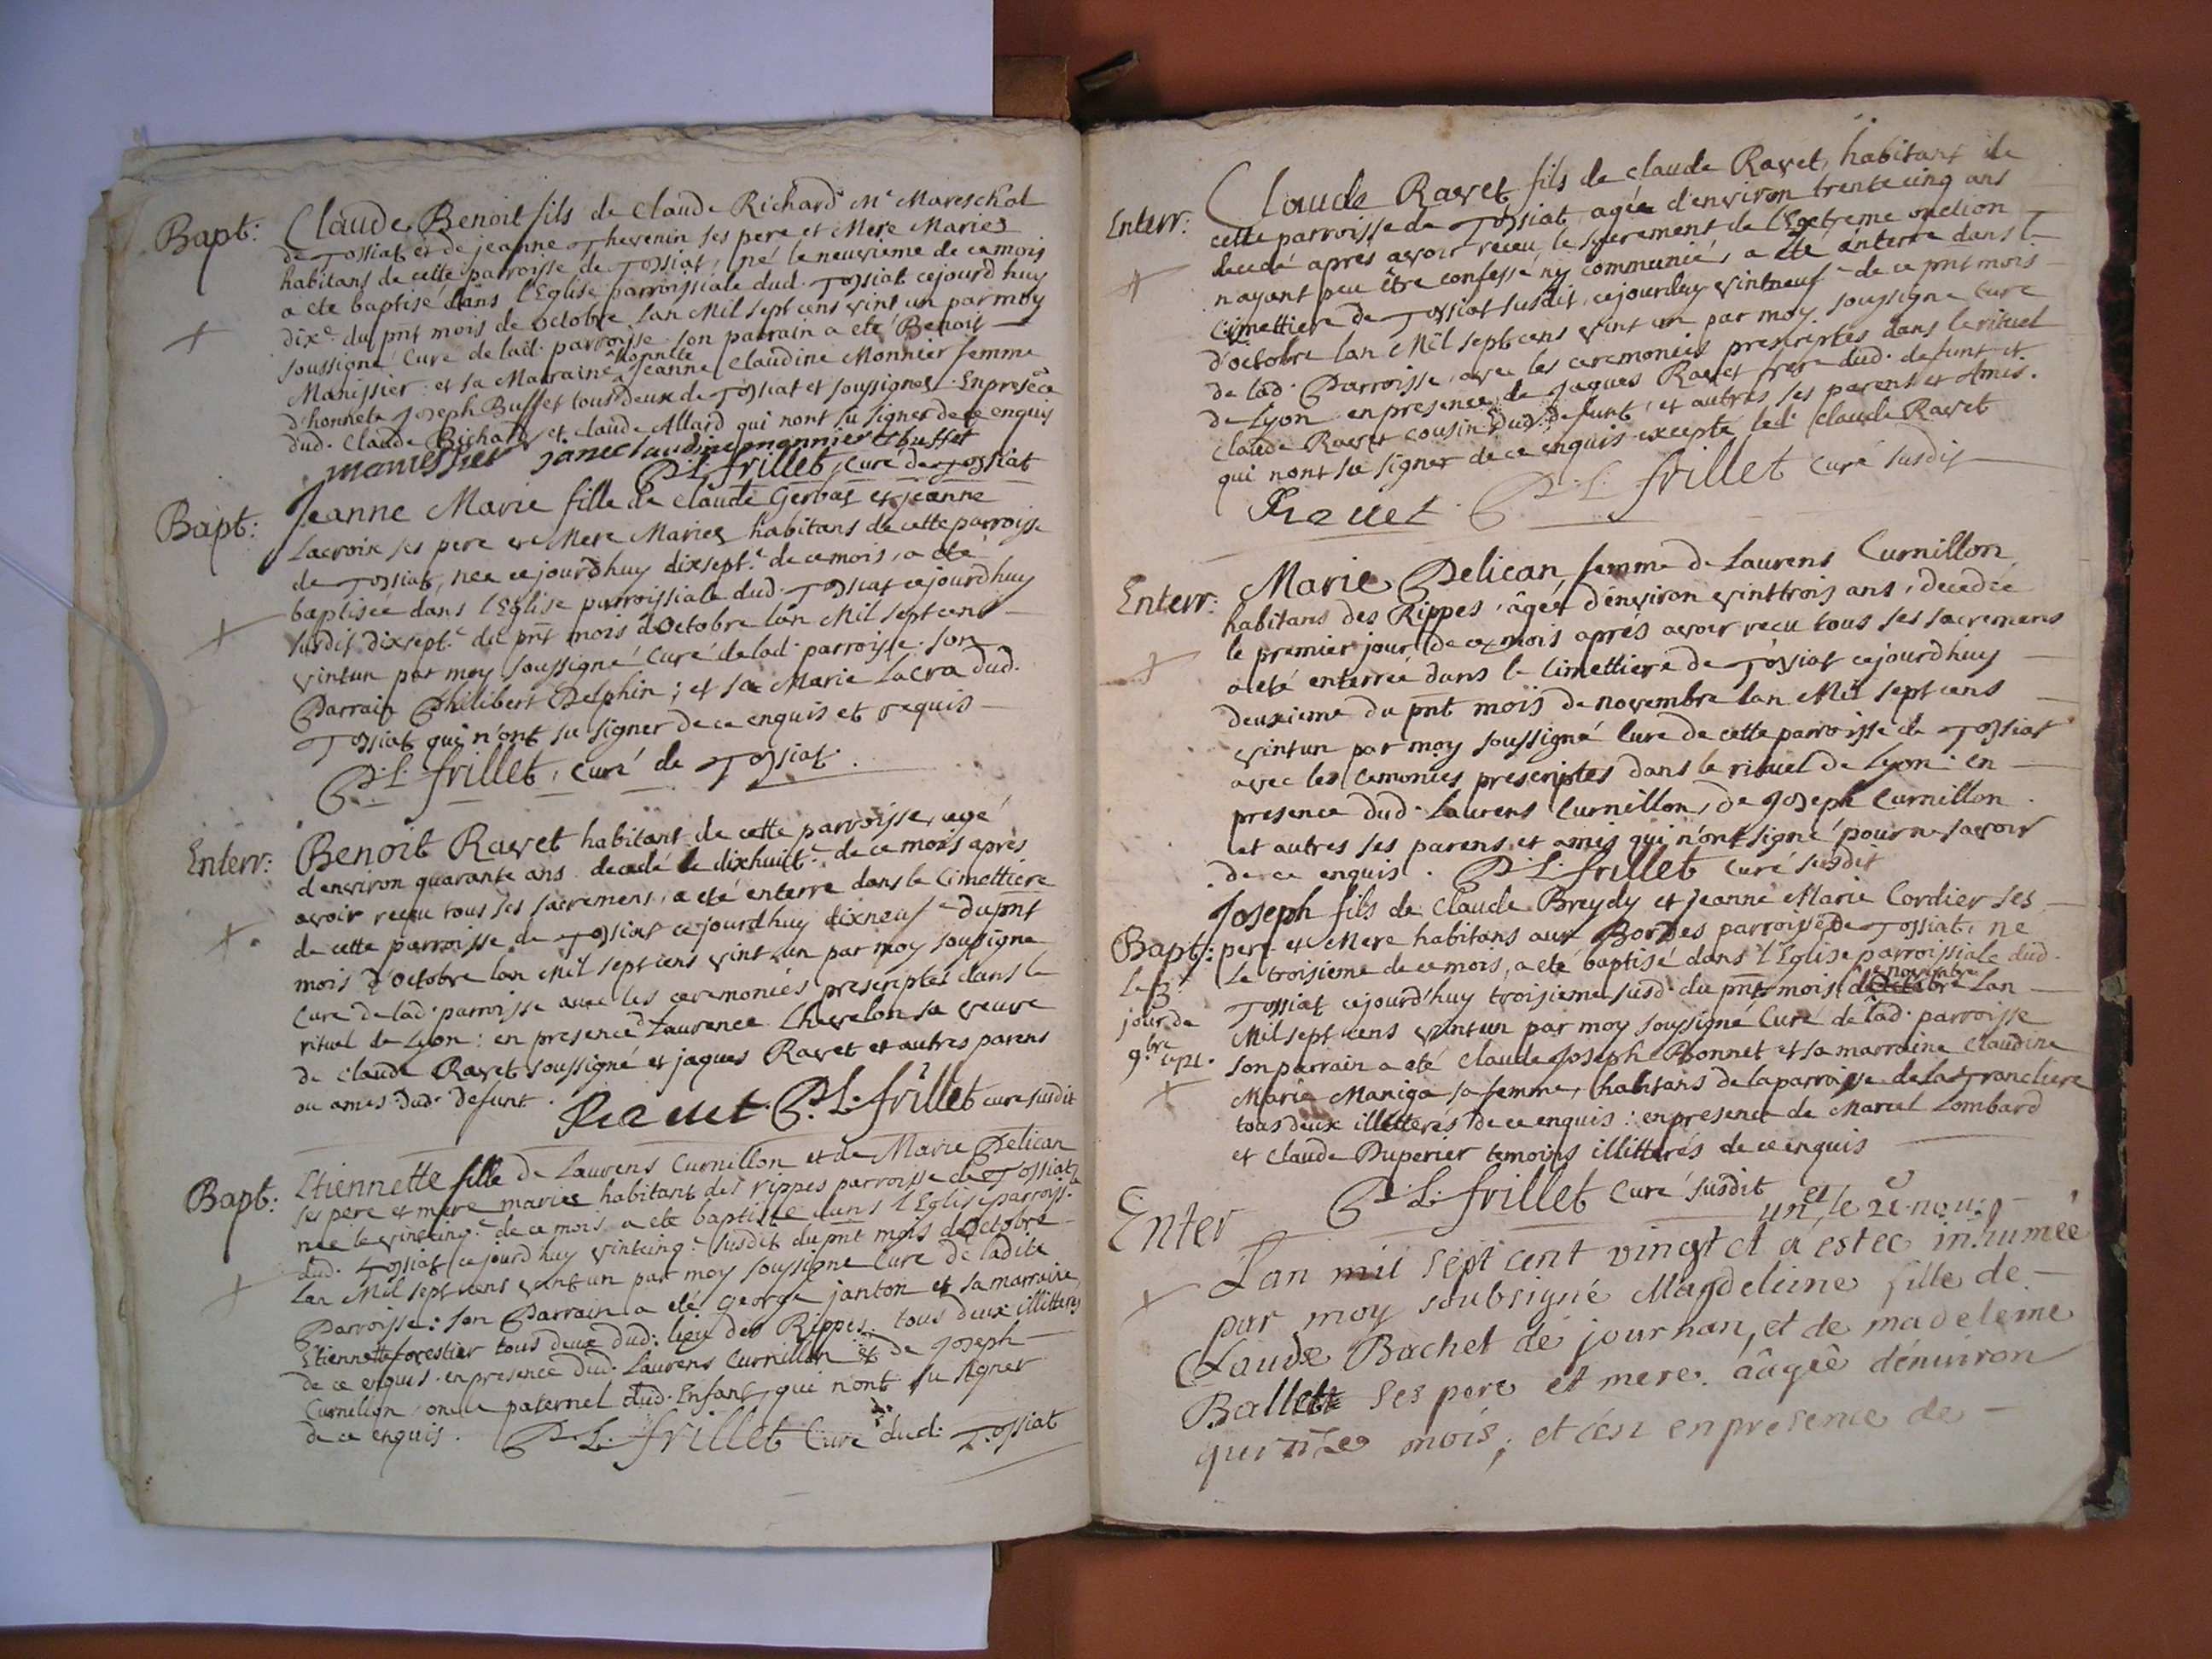 Bapt: Claude Benoit fils de Claude Richard Me Mareschal
de Tossiat et de jeanne Thevenin ses pere et Mere Mariez
habitans de cette parroisse de Tossiat, né le neuvieme de ce mois
a ete baptisé dans l'Eglise parroissiale dud. Tossiat cejourd huy
dixe. du pnt mois de Octobre lan Mil sept cens vint un par moy
soussigné Curé de lad. parroisse son parrain a eté Benoit
Manissier et sa Marraine honnete Jeanne Claudine Monnier femme
d'honnete Joseph Buffet tous deux de Tossiat et soussignes. En presece
dud. Claude Richard et Claude Allard qui nont su signer de ce enquis
manissier janeclaudinemonnier buffet
P. L. frillet, Curé de Tossiat
Bapt: Jeanne Marie fille de Claude Gerbat et jeanne
Lacroix ses pere et Mere Mariez habitans de cette parroisse
de Tossiat, née cejourdhuy dixsept.e de ce mois, a eté
baptisée dans l'Eglise parroissiale dud. Tossiat cejourdhuy
susdit dixsept.e du pnt mois dOctobre lan Mil sept cens
vintun par moy soussigné Curé de lad. parroisse. son
Parrain Philibert Delphin; et sa Marie Lacra dud.
Tossiat qui n'ont su signer de ce enquis et requis
P. L. frillet, curé de Tossiat.
Enterr: Benoit Ravet habitant de cette parroisse, agé
denviron quarante ans. decedé le dixhuit.e de ce mois apres
avoir receu tous ses sacremens, a eté enterre dans le Cimettiere
de cette parroisse de Tossiat cejourdhuy dixneuf.e du pnt
mois d'Octobre lan Mil sept cens vint un par moy soussigne
Curé de lad. parroisse avec les ceremonies prescriptes dans le
rituel de Lyon: en presence d Laurence Chevelon sa veuve
de Claude Ravet soussigné et jaques Ravet et autres parens
ou amis dud. defunt.
Ravet P. L. frillet curé susdit
Bapt: Etiennette fille de Laurens Curnillon et de Marie Pelican
ses pere et mere mariez habitant des rippes parroisse de Tossiat
née le vintcinq.e de ce mois a eté baptisée dans l'Eglise parroiss.le
dud. Tossiat cejourdhuy vintcinq.e susdit du pnt mois dOctobre
lan Mil sept cens vint un par moy soussigné Curé de ladite
Parroisse: son Parrain a eté George janton et sa marraine
Etiennette forestier tous deux dud. lieu des Rippes. tous deux illitteres
de ce enquis. en presence dud. Laurens Curnillon et de Joseph
Curnillon oncle paternel dud. Enfant, qui n'ont su signer
de ce enquis. P. L. frillet Curé dud. Tossiat
Enterr: Claude Ravet fils de Claude Ravet, habitant de
cette parroisse de Tossiat, agée d'environ trente cinq ans
decedé apres avoir receu le sacrement de l'Extreme onction
nayant peu être confessé ny communié, a été enterre dans le
Cimettiere de Tossiat susdit, cejourdhuy vintneuf.e de ce pnt mois
d'octobre lan Mil sept cens vint un par moy soussigne Curé
de lad. Parroisse avec les ceremonies prescriptes dans le rituel
de Lyon en presence de Jaques Ravet frere dud. defunt et
Claude Ravet cousin dud. defunt, et autres ses parens et Amis.
qui nont su signer de ce enquis excepté led. Claude Ravet
Ravet P. L. frillet Curé susdit
Enterr: Marie Pelican, femme de Laurens Curnillon
habitans des Rippes, âgée d'environ vinttrois ans, decedée
le premier jour de ce mois aprés avoir recu tous ses sacremens
a eté enterrée dans le Cimettiere de Tossiat cejourdhuy
deuxieme du pnt mois de novembre lan Mil sept cens
vintun par moy soussigné Curé de cette parroisse de Tossiat
avec les cemonies prescriptes dans le rituel de Lyon: en
presence dud. Laurens Curnillon, de Joseph Curnillon
et autres ses parens et amis qui n'ont signé pour ne savoir
de ce enquis. P. L. frillet Curé susdit
Joseph fils de Claude Breydy et Jeanne Marie Cordier ses
Bapt: pere et Mere habitans aux Bordes parroisse de Tossiat, né
le 3e le troisieme de ce mois, a eté baptisé dans l'Eglise parroissiale dud.
jour de Tossiat cejourd'huy troisieme susd. du pnt mois de novembre lan
9.bre 1721. Mil sept cens vintun par moy soussigné Curé de lad. parroisse
son parrain a eté Claude Joseph Bonnet et sa marraine Claudine
Marie Maniga sa femme, habitans de la parroisse de la Trancliere
tous deux illitterés de ce enquis: en presence de Marcel Lombard
et Claude Duperier temoins illitterés de ce enquis
P. L. frillet Curé susdit
Enter un et le 2e. nou.
Lan mil sept cent vingt et a estée inhumée
par moy soubsigné Magdeleine fille de
Claude Bachet de journan, et de madeleine
Ballet ses pere et mere. âagée denuiron
quinze mois; et c'est en presence de